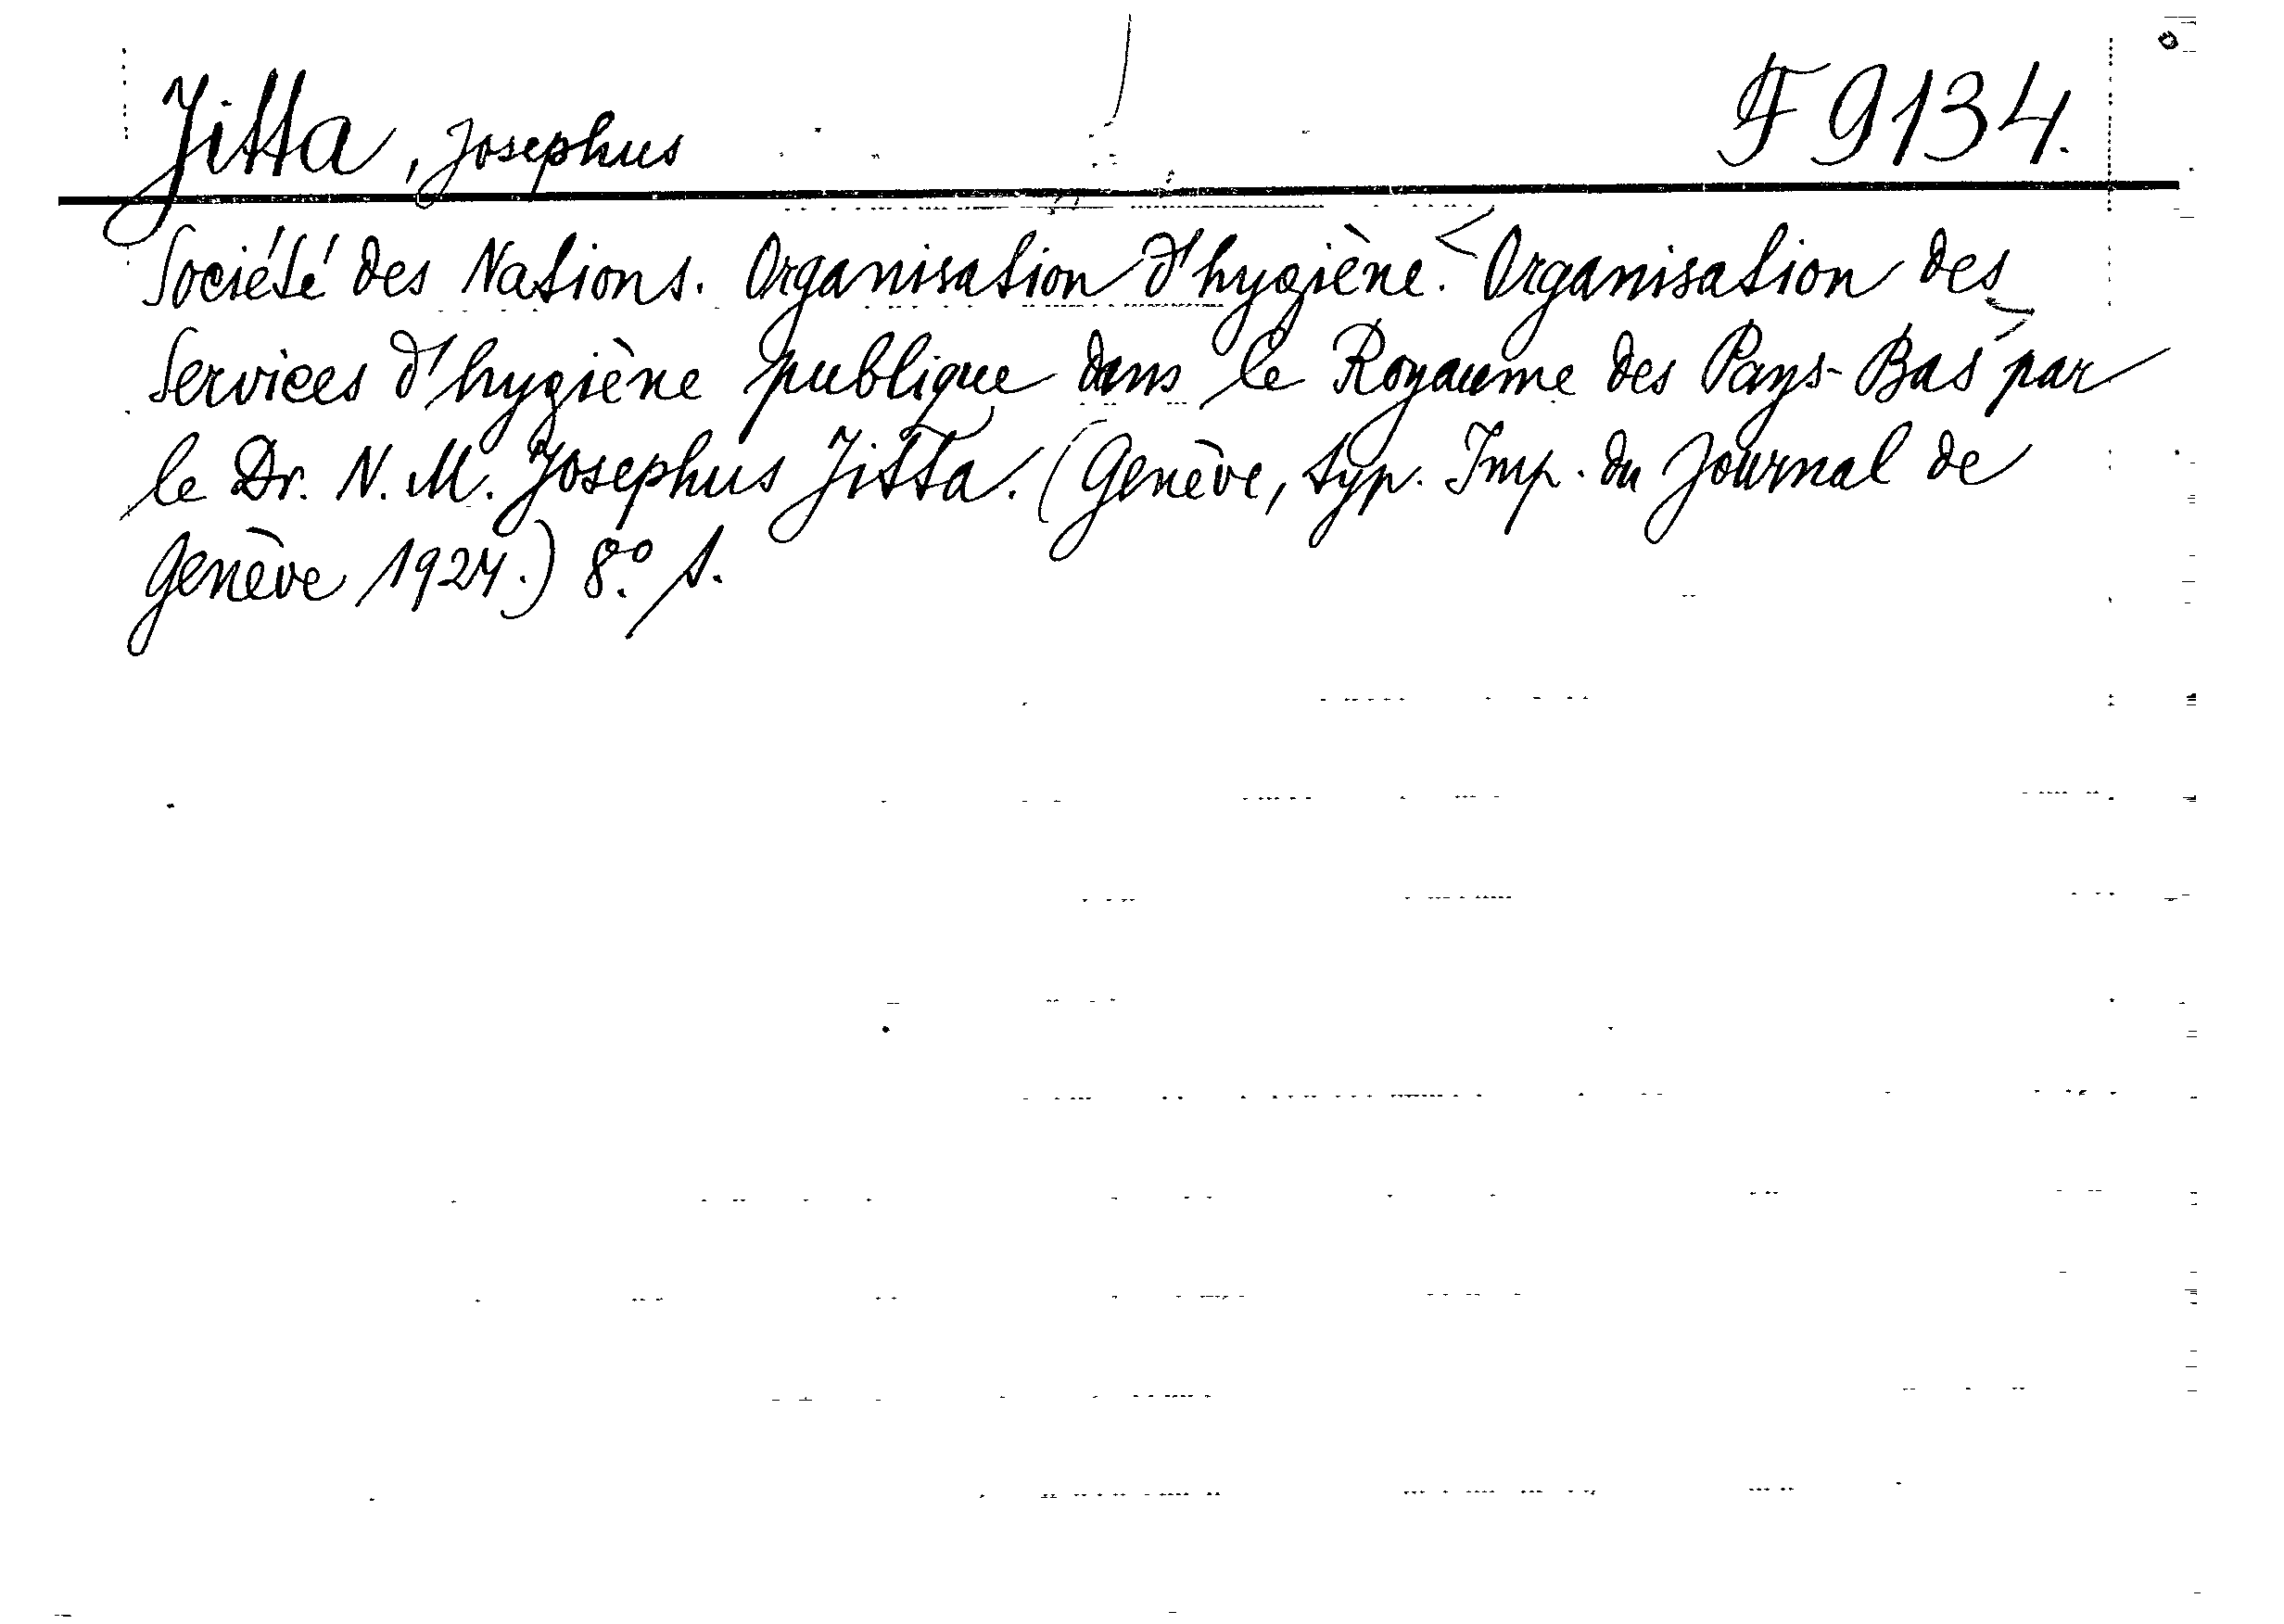 Jitta, Josephus F 9134.
Société des Nations. Organisation d'hygiène. < Organisation des
Services d'hygiène publique dans le Royaume des Pays-Bas > par
le Dr. N. M. Josephus Jitta. (Genève, typ. Imp. du Journal de
Genève 1924.) 8.° s.